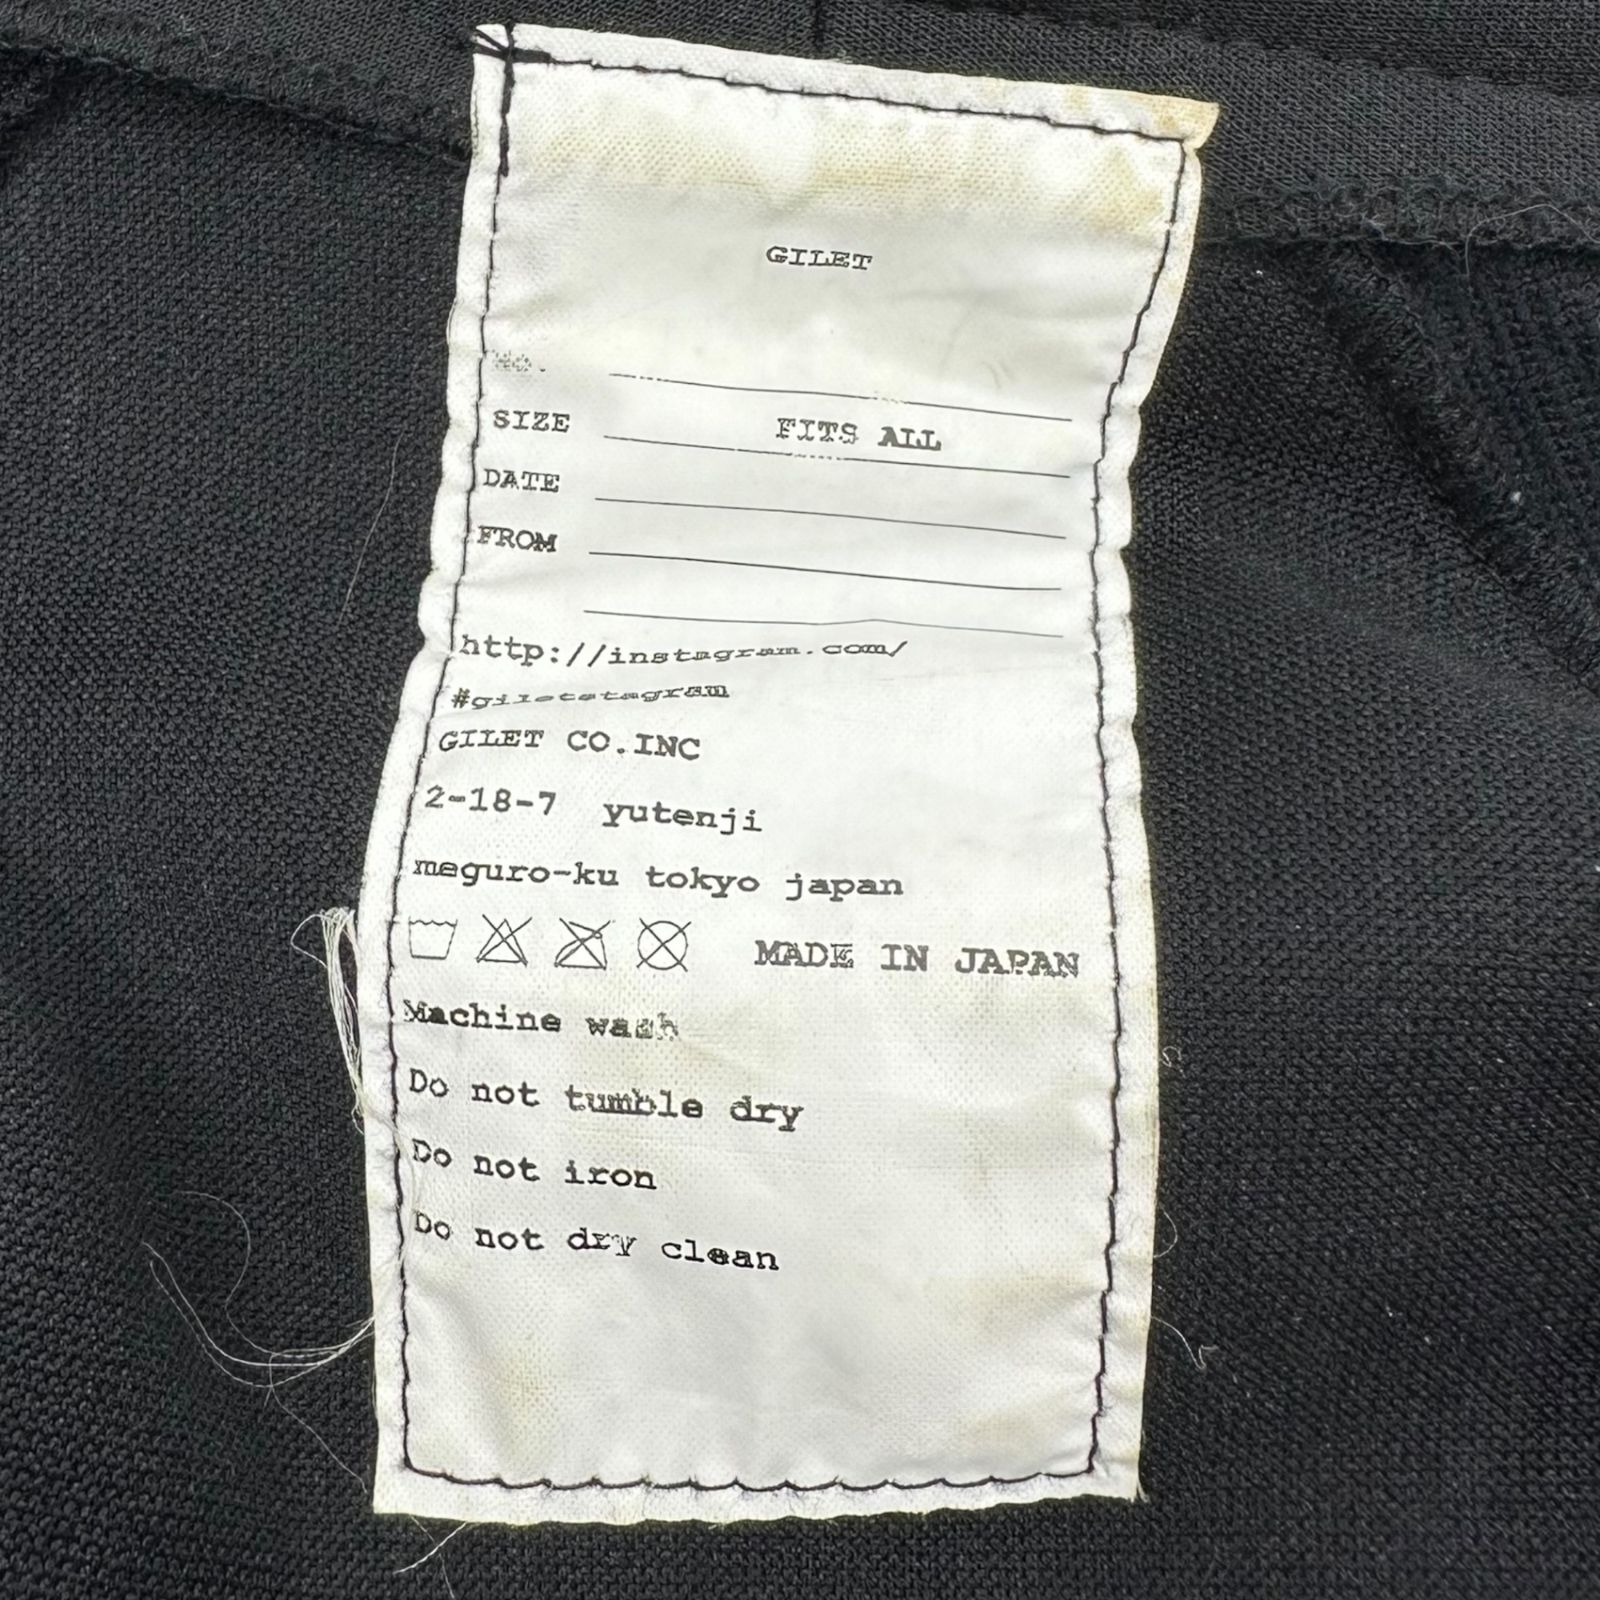 GILET
No.
SIZE FITS ALL
DATE
FROM
http://instagram.com/
#giletstagram
GILET CO.INC
2-18-7 yutenji
meguro-ku tokyo japan
MADE IN JAPAN
Machine wash
Do not tumble dry
Do not iron
Do not dry clean